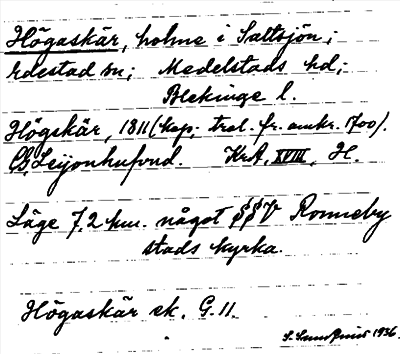 Högaskär, holme i Saltsjön;
Edestad sn; Medelstads hd;
Blekinge l.
Högskär, 1811 (kop. trol. fr. omkr. 1700).
Leijonhufvud. KrA, XVIII, H.
Läge 7,2 km. något SSV Ronneby
stads kyrka.
Högaskär ek. G. 11.
1936.